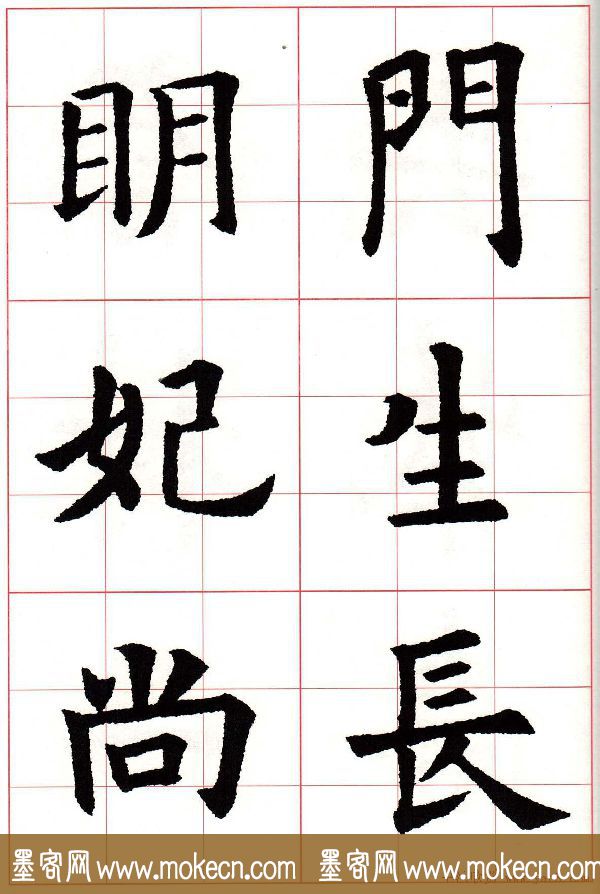 門生長
眀妃尚
墨客网 www.mokecn.com 墨客网 www.mokecn.com